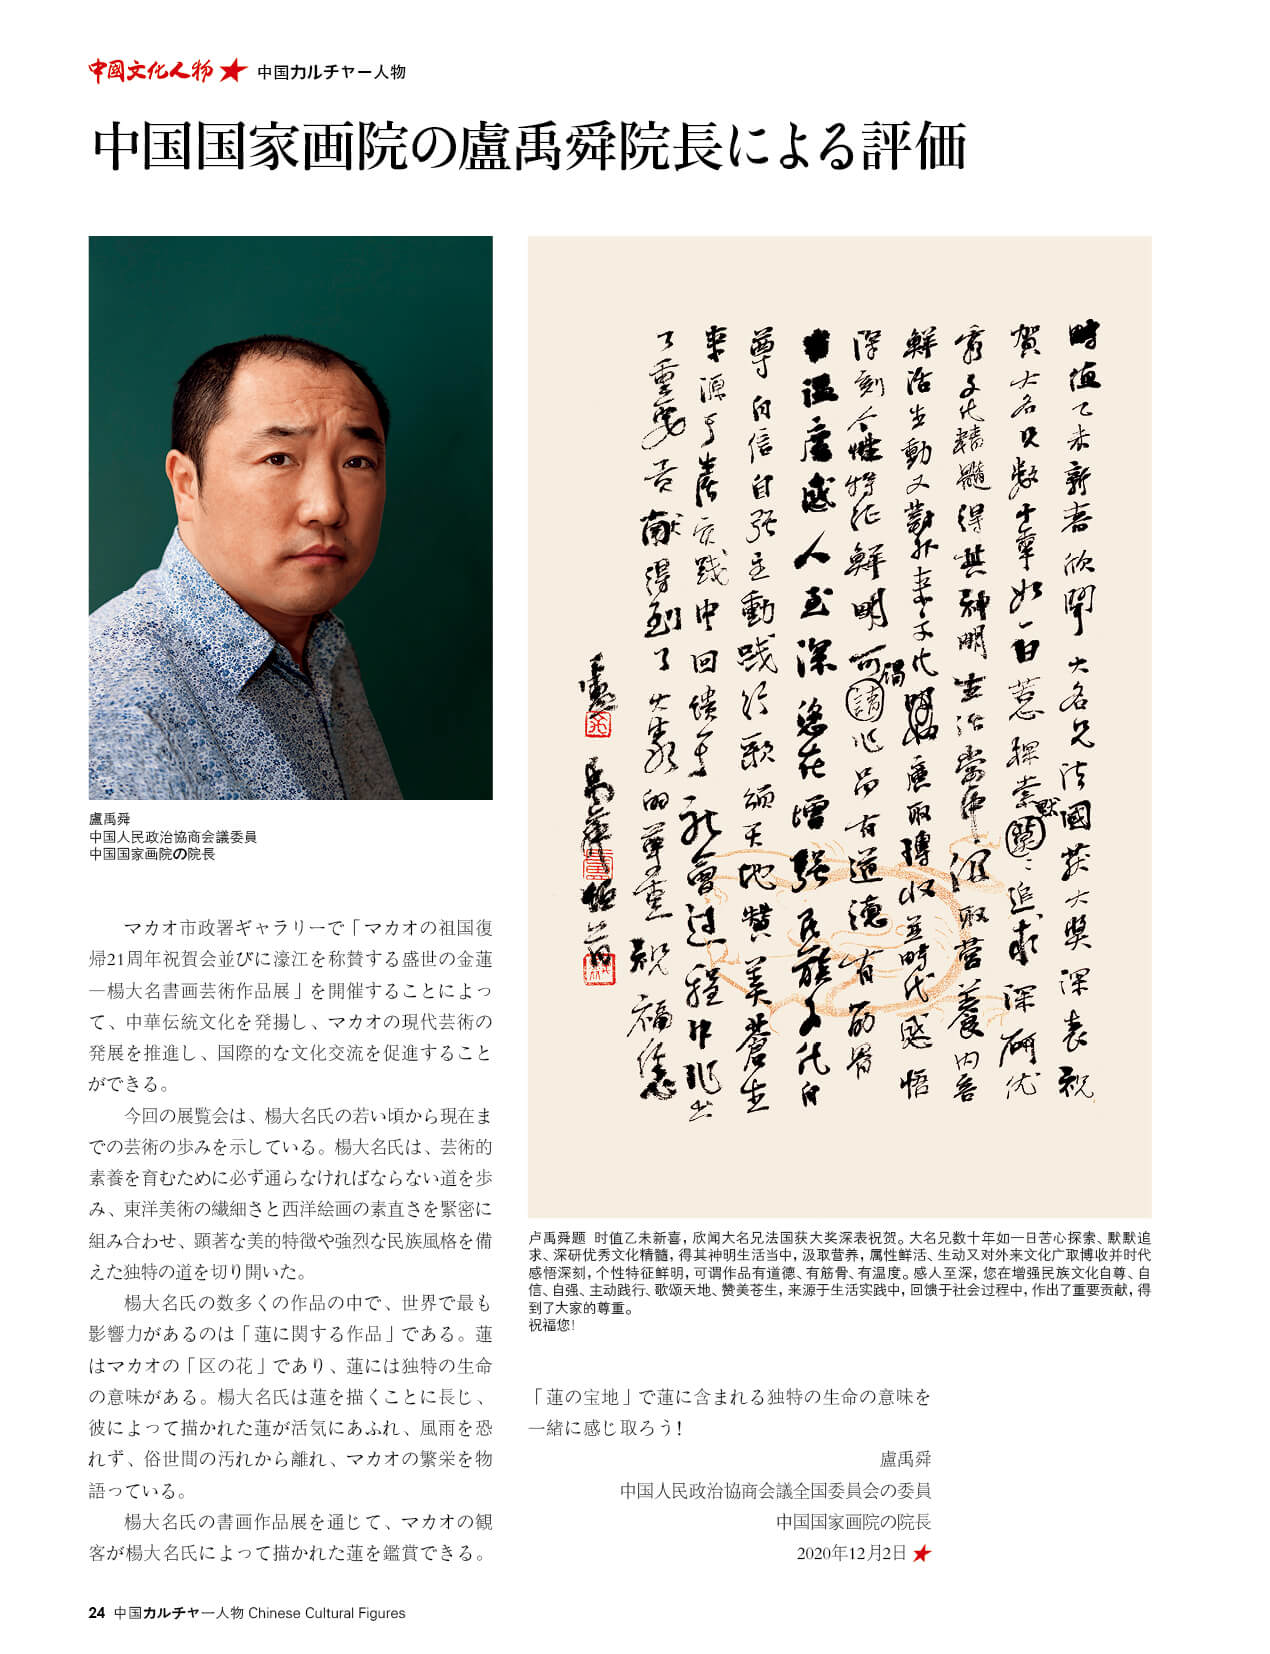 中國文化人物 ★ 中国カルチャー人物
中国国家画院の盧禹舜院長による評価
盧禹舜
中国人民政治協商会議委員
中国国家画院の院長
マカオ市政署ギャラリーで「マカオの祖国復
帰21周年祝賀会並びに濠江を称賛する盛世の金蓮
—楊大名書画芸術作品展」を開催することによっ
て、中華伝統文化を発揚し、マカオの現代芸術の
発展を推進し、国際的な文化交流を促進すること
ができる。
今回の展覧会は、楊大名氏の若い頃から現在ま
での芸術の歩みを示している。楊大名氏は、芸術的
素養を育むために必ず通らなければならない道を歩
み、東洋美術の繊細さと西洋絵画の素直さを緊密に
組み合わせ、顕著な美的特徴や強烈な民族風格を備
えた独特の道を切り開いた。
楊大名氏の数多くの作品の中で、世界で最も
影響力があるのは「蓮に関する作品」である。蓮
はマカオの「区の花」であり、蓮には独特の生命
の意味がある。楊大名氏は蓮を描くことに長じ、
彼によって描かれた蓮が活気にあふれ、風雨を恐
れず、俗世間の汚れから離れ、マカオの繁栄を物
語っている。
楊大名氏の書画作品展を通じて、マカオの観
客が楊大名氏によって描かれた蓮を鑑賞できる。
时值乙未新喜欣聞大名兄法國获大奖深表祝
賀大名兄数十年如一日苦心探索默默追求深研优
秀文化精髓得其神明生活當中汲取营養内容
鮮活生動又對外来文化廣取博收並時代感悟
深刻个性特征鮮明可謂作品有道德有筋骨
有温度感人至深您在增强民族文化自
尊自信自强主動践行歌颂天地赞美蒼生
来源于生活实践中回馈于社會过程中作出
了重要贡献得到了大家的尊重祝福您
卢禹舜题 时值乙未新喜，欣闻大名兄法国获大奖深表祝贺。大名兄数十年如一日苦心探索、默默追
求、深研优秀文化精髓，得其神明生活当中，汲取营养，属性鲜活、生动又对外来文化广取博收并时代
感悟深刻，个性特征鲜明，可谓作品有道德、有筋骨、有温度。感人至深，您在增强民族文化自尊、自
信、自强、主动践行、歌颂天地、赞美苍生，来源于生活实践中，回馈于社会过程中，作出了重要贡献，得
到了大家的尊重。
祝福您！
「蓮の宝地」で蓮に含まれる独特の生命の意味を
一緒に感じ取ろう！
盧禹舜
中国人民政治協商会議全国委員会の委員
中国国家画院の院長
2020年12月2日 ★
24 中国カルチャー人物 Chinese Cultural Figures